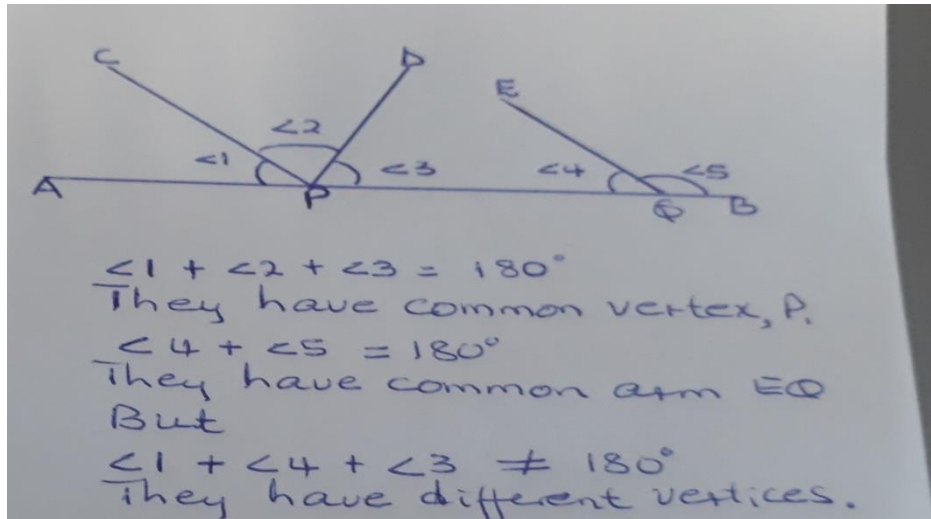 C
D
E
<2
<1
<3
<4
<5
A
P
Q
B
<1 + <2 + <3 = 180°
They have common vertex, P.
<4 + <5 = 180°
They have common arm EQ
But
<1 + <4 + <3 ≠ 180°
They have different vertices.